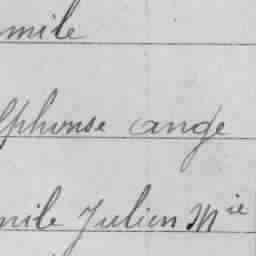 mile
lphonse ange
mile Julien Mie